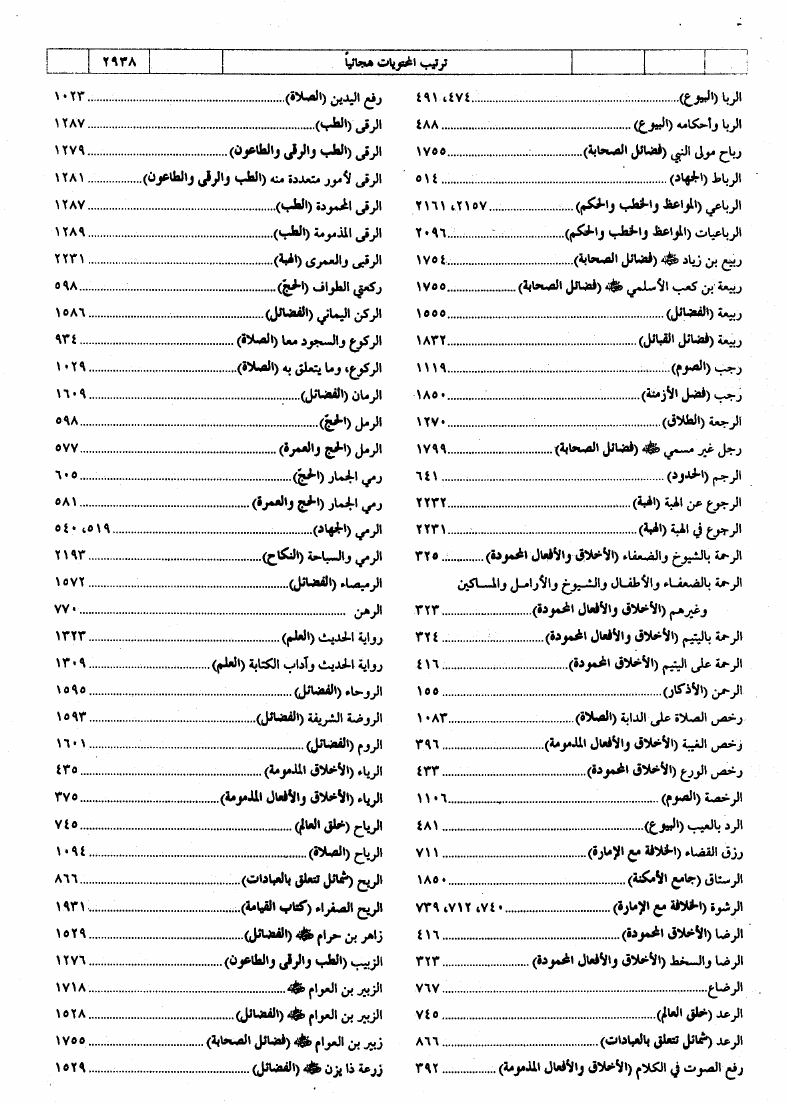 ترتيب المحتويات هجائياً ٢٩٣٨
الربا (البيوع) ٤٧٤، ٤٩١
الربا وأحكامه (البيوع) ٤٨٨
رباح مولى النبي (فضائل الصحابة) ١٧٥٥
الرباط (الجهاد) ٥١٤
الرباعي (المواعظ والخطب والحكم) ٢١٥٧، ٢١٦١
الرباعيات (المواعظ والخطب والحكم) ٢٠٩٦
ربيع بن زياد ﷺ (فضائل الصحابة) ١٧٥٤
ربيعة بن كعب الأسلمي ﷺ (فضائل الصحابة) ١٧٥٥
ربيعة (الفضائل) ١٥٥٥
ربيعة (فضائل القبائل) ١٨٣٢
رجب (الصوم) ١١١٩
رجب (فضل الأزمنة) ١٨٥٠
الرجعة (الطلاق) ١٢٧٠
رجل غير مسمي ﷺ (فضائل الصحابة) ١٧٩٩
الرجم (الحدود) ٦٤١
الرجوع عن الهبة (الهبة) ٢٢٣٢
الرجوع في الهبة (الهبة) ٢٢٣١
الرحمة بالشيوخ والضعفاء (الأخلاق والأفعال المحمودة) ٣٢٥
الرحمة بالضعفاء والأطفال والشيوخ والأرامل والمساكين
وغيرهم (الأخلاق والأفعال المحمودة) ٣٢٣
الرحمة باليتيم (الأخلاق والأفعال المحمودة) ٣٢٤
الرحمة على اليتيم (الأخلاق المحمودة) ٤١٦
الرحمن (الأذكار) ١٥٥
رخص الصلاة على الدابة (الصلاة) ١٠٨٣
رخص الغيبة (الأخلاق والأفعال المذمومة) ٣٩٦
رخص الورع (الأخلاق المحمودة) ٤٣٣
الرخصة (الصوم) ١١٠٦
الرد بالعيب (البيوع) ٤٨١
رزق القضاء (الخلافة مع الإمارة) ٧١١
الرستاق (جامع الأمكنة) ١٨٥٠
الرشوة (الخلافة مع الإمارة) ٧٤٠، ٧١٢، ٧٣٩
الرضا (الأخلاق المحمودة) ٤١٦
الرضا والسخط (الأخلاق والأفعال المحمودة) ٣٢٣
الرضاع ٧٦٧
الرعد (خلق العالم) ٧٤٥
الرعد (شمائل تتعلق بالعبادات) ٨٦٦
رفع الصوت في الكلام (الأخلاق والأفعال المذمومة) ٣٩٢
رفع اليدين (الصلاة) ١٠٢٣
الرقى (الطب) ١٢٨٧
الرقى (الطب والرقى والطاعون) ١٢٧٩
الرقى لأمور متعددة منه (الطب والرقى والطاعون) ١٢٨١
الرقى المحمودة (الطب) ١٢٨٧
الرقى المذمومة (الطب) ١٢٨٩
الرقبى والعمرى (الهبة) ٢٢٣١
ركعتي الطواف (الحج) ٥٩٨
الركن اليماني (الفضائل) ١٥٨٦
الركوع والسجود معا (الصلاة) ٩٣٤
الركوع، وما يتعلق به (الصلاة) ١٠٢٩
الرمان (الفضائل) ١٦٠٩
الرمل (الحج) ٥٩٨
الرمل (الحج والعمرة) ٥٧٧
رمي الجمار (الحج) ٦٠٥
رمي الجمار (الحج والعمرة) ٥٨١
الرمي (الجهاد) ٥١٩، ٥٤٠
الرمي والسباحة (النكاح) ٢١٩٣
الرميصاء (الفضائل) ١٥٧٢
الرهن ٧٧٠
رواية الحديث (العلم) ١٣٢٣
رواية الحديث وآداب الكتابة (العلم) ١٣٠٩
الروحاء (الفضائل) ١٥٩٥
الروضة الشريفة (الفضائل) ١٥٩٣
الروم (الفضائل) ١٦٠١
الرياء (الأخلاق المذمومة) ٤٣٥
الرياء (الأخلاق والأفعال المذمومة) ٣٧٥
الرياح (خلق العالم) ٧٤٥
الرياح (الصلاة) ١٠٩٤
الريح (شمائل تتعلق بالعبادات) ٨٦٦
الريح الصفراء (كتاب القيامة) ١٩٣١
زاهر بن حرام ﷺ (الفضائل) ١٥٢٩
الزبيب (الطب والرقى والطاعون) ١٢٧٦
الزبير بن العوام ﷺ ١٧١٨
الزبير بن العوام ﷺ (الفضائل) ١٥٢٨
زبير بن العوام ﷺ (فضائل الصحابة) ١٧٥٥
زرعة ذا يزن ﷺ (الفضائل) ١٥٢٩